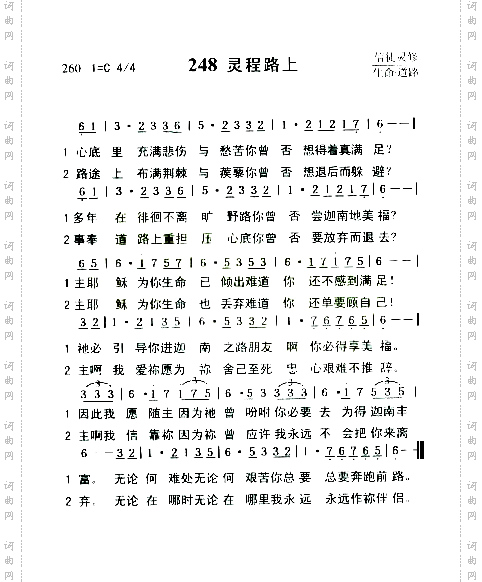 260 1=C 4/4 248 灵程路上 信徒灵修
生命·道路
6 1 | 3 · 2 3 3 6 | 5 · 2 3 3 2 | 1 · 2 1 2 1 7 | 6 — — |
1 心底 里 充满悲伤 与 愁苦你曾 否 想得着真满 足?
2 路途 上 布满荆棘 与 蒺藜你曾 否 想退后而躲 避?
6 1 | 3 · 2 3 3 6 | 5 · 2 3 3 2 | 1 · 2 1 2 1 7 | 6 — — |
1 多年 在 徘徊不离 旷 野路你曾 否 尝迦南地美福?
2 事奉 道 路上重担 压 心底你曾 否 要放弃而退去?
6 5 | 6 · 1 7 5 7 | 6 · 5 3 5 3 2 | 1 · 2 3 5 6 | 0 · 1 7 1 7 5 | 6 — — |
1 主耶 稣 为你生命 已 倾出难道 你 还不感到满足!
2 主耶 稣 为你生命 也 丢弃难道 你 还单要顾自己!
3 2 | 1 · 2 1 3 5 | 6 · 5 6 5 3 | 6 · 7 6 7 6 5 | 6 — — |
1 祂必 引 导你进迦 南 之路朋友 啊 你必得享美 福。
2 主啊 我 爱祢愿为 祢 舍己至死 忠 心艰难不推 辞。
3 3 3 | 6 · 1 7 1 7 5 | 6 · 5 3 3 3 3 | 6 · 5 3 5 3 2 | 1 · 7 5 3 5
1 因此我 愿 随主因为祂 曾 吩咐你必要 去 为得迦南丰
2 主啊我 信 靠祢因为祢 曾 应许我永远 不 会把你来离
6 — 3 2 | 1 · 2 1 3 5 | 6 · 5 6 5 3 | 6 · 7 6 7 6 5 | 6 — —
1 富。 无论 何 难处无论 何 艰苦你总 要 总要奔跑前 路。
2 弃。 无论 在 哪时无论 在 哪里我永 远 永远作祢伴 侣。
词曲网
词曲网
词曲网
词曲网
词曲网
词曲网
词曲网
词曲网